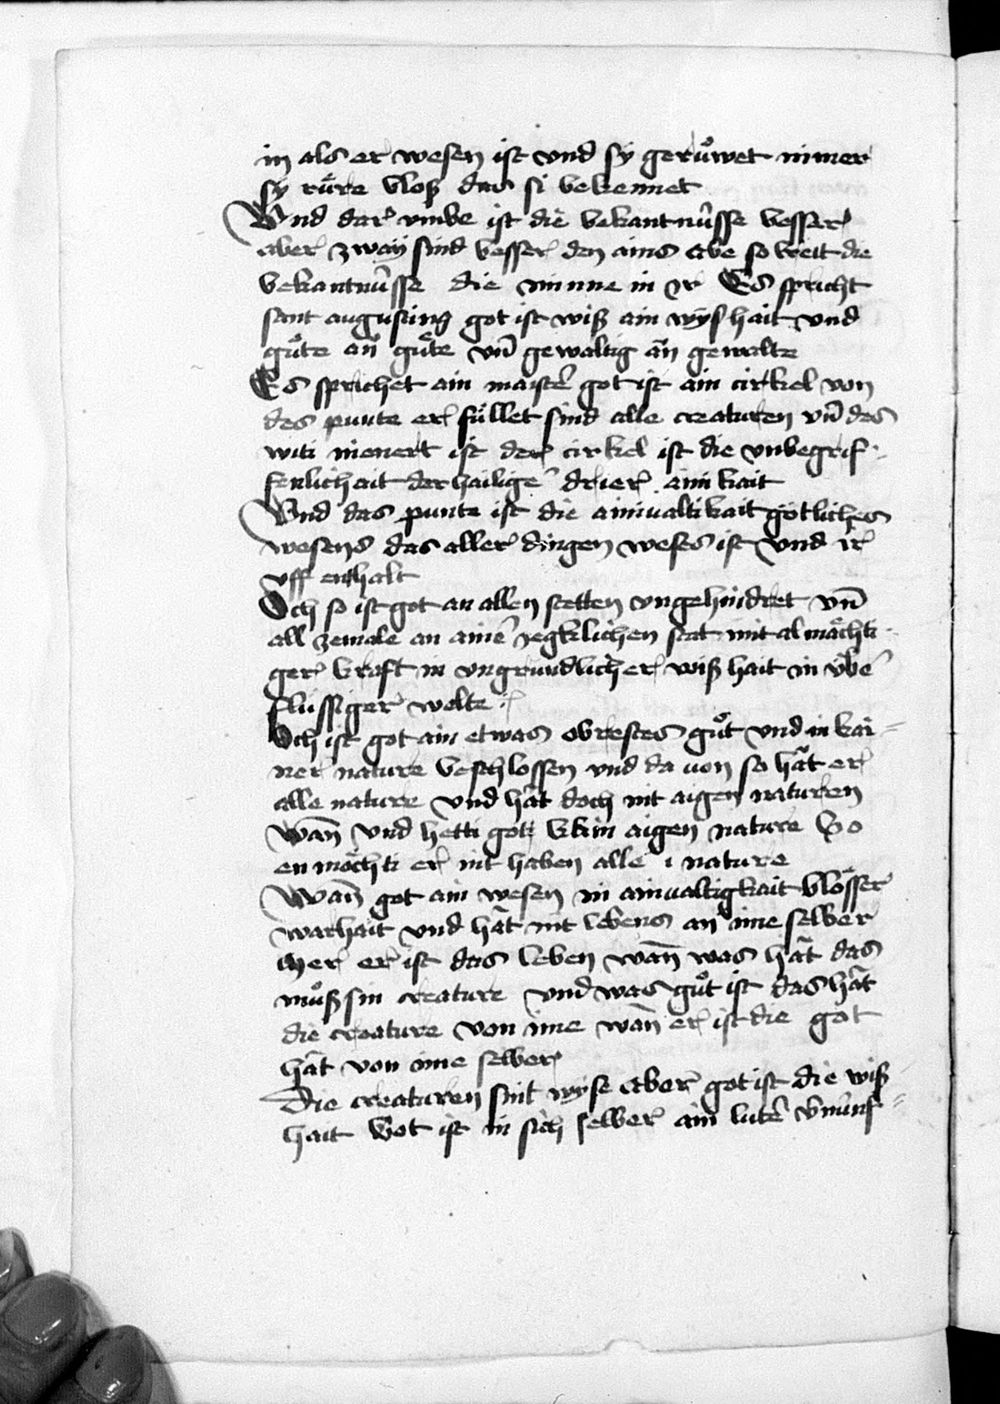 in als er wesen ist vnd sy gerůwet nimer
sy růre blosz das si bekennet
Vnd dar vmbe ist die bekantnůsse besser
aber zway sind besser den ains Abe so breit die
bekantnůsse die minne in ir Es spricht
sant augusting got ist wiß ain wyshait vnd
gůte an gůte vn̄ gewaltig an̄ gewalte
Es sprichet ain maistē got ist ain cirkel von
des punte er füllet sind alle creaturen vn̄ des
witi nienert ist der cirkel ist die vnbegrif
fenlichait der hailigē drier ainikait
Vnd das punte ist die ainualtikait götliches
wesens das aller dingen weses ist vnd ir
vff enthalt
Och so ist got an allen stetten vngehindret vn̄
all zemale an ainē yegklichen stat mit almächti
ger kraft in vngrundlicher wißhait in v̈bē
flüssiger wolte
Och ist got ain etwas obrestes gůt vnd in kai-
ner nature beschlossen vnd da uon so hāt er
alle nature vnd hāt doch nit aigen naturen
wan̄ vnd hetti got kain aigen nature So
en möchti er nit haben alle i nature
Wan̄ got ain wesen in ainualtigkait blösser
warhait vnd hāt nit lebens an ime selber
mer er ist das leben wan̄ was hāt das
můß sin creature vnd was gůt ist das hāt
die creature von ime wan er ist die got
hāt von ime selber
Die creaturen sint wyse Aber got ist die wiß
hait Got ist in sich selber ain lutē v̄nünf-